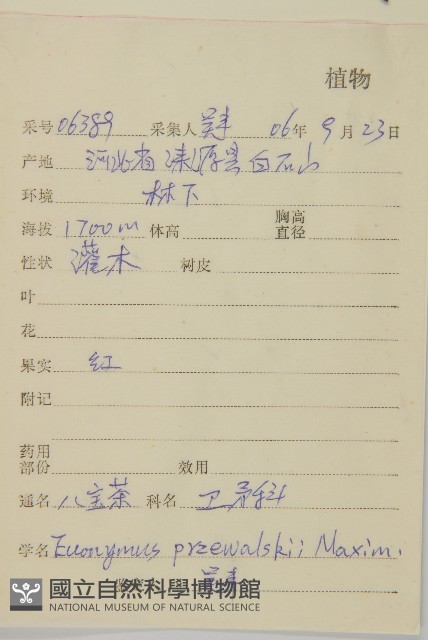 植物
采号 06389 采集人 吴丰 06年 9月 23日
产地 河北省涞源县白石山
环境 林下
海拔 1700m 体高 胸高直径
性状 灌木 树皮
叶
花
果实 红
附记
药用部份 效用
通名 八宝茶 科名 卫矛科
学名 Euonymus przewalskii Maxim.
國立自然科學博物館
NATIONAL MUSEUM OF NATURAL SCIENCE